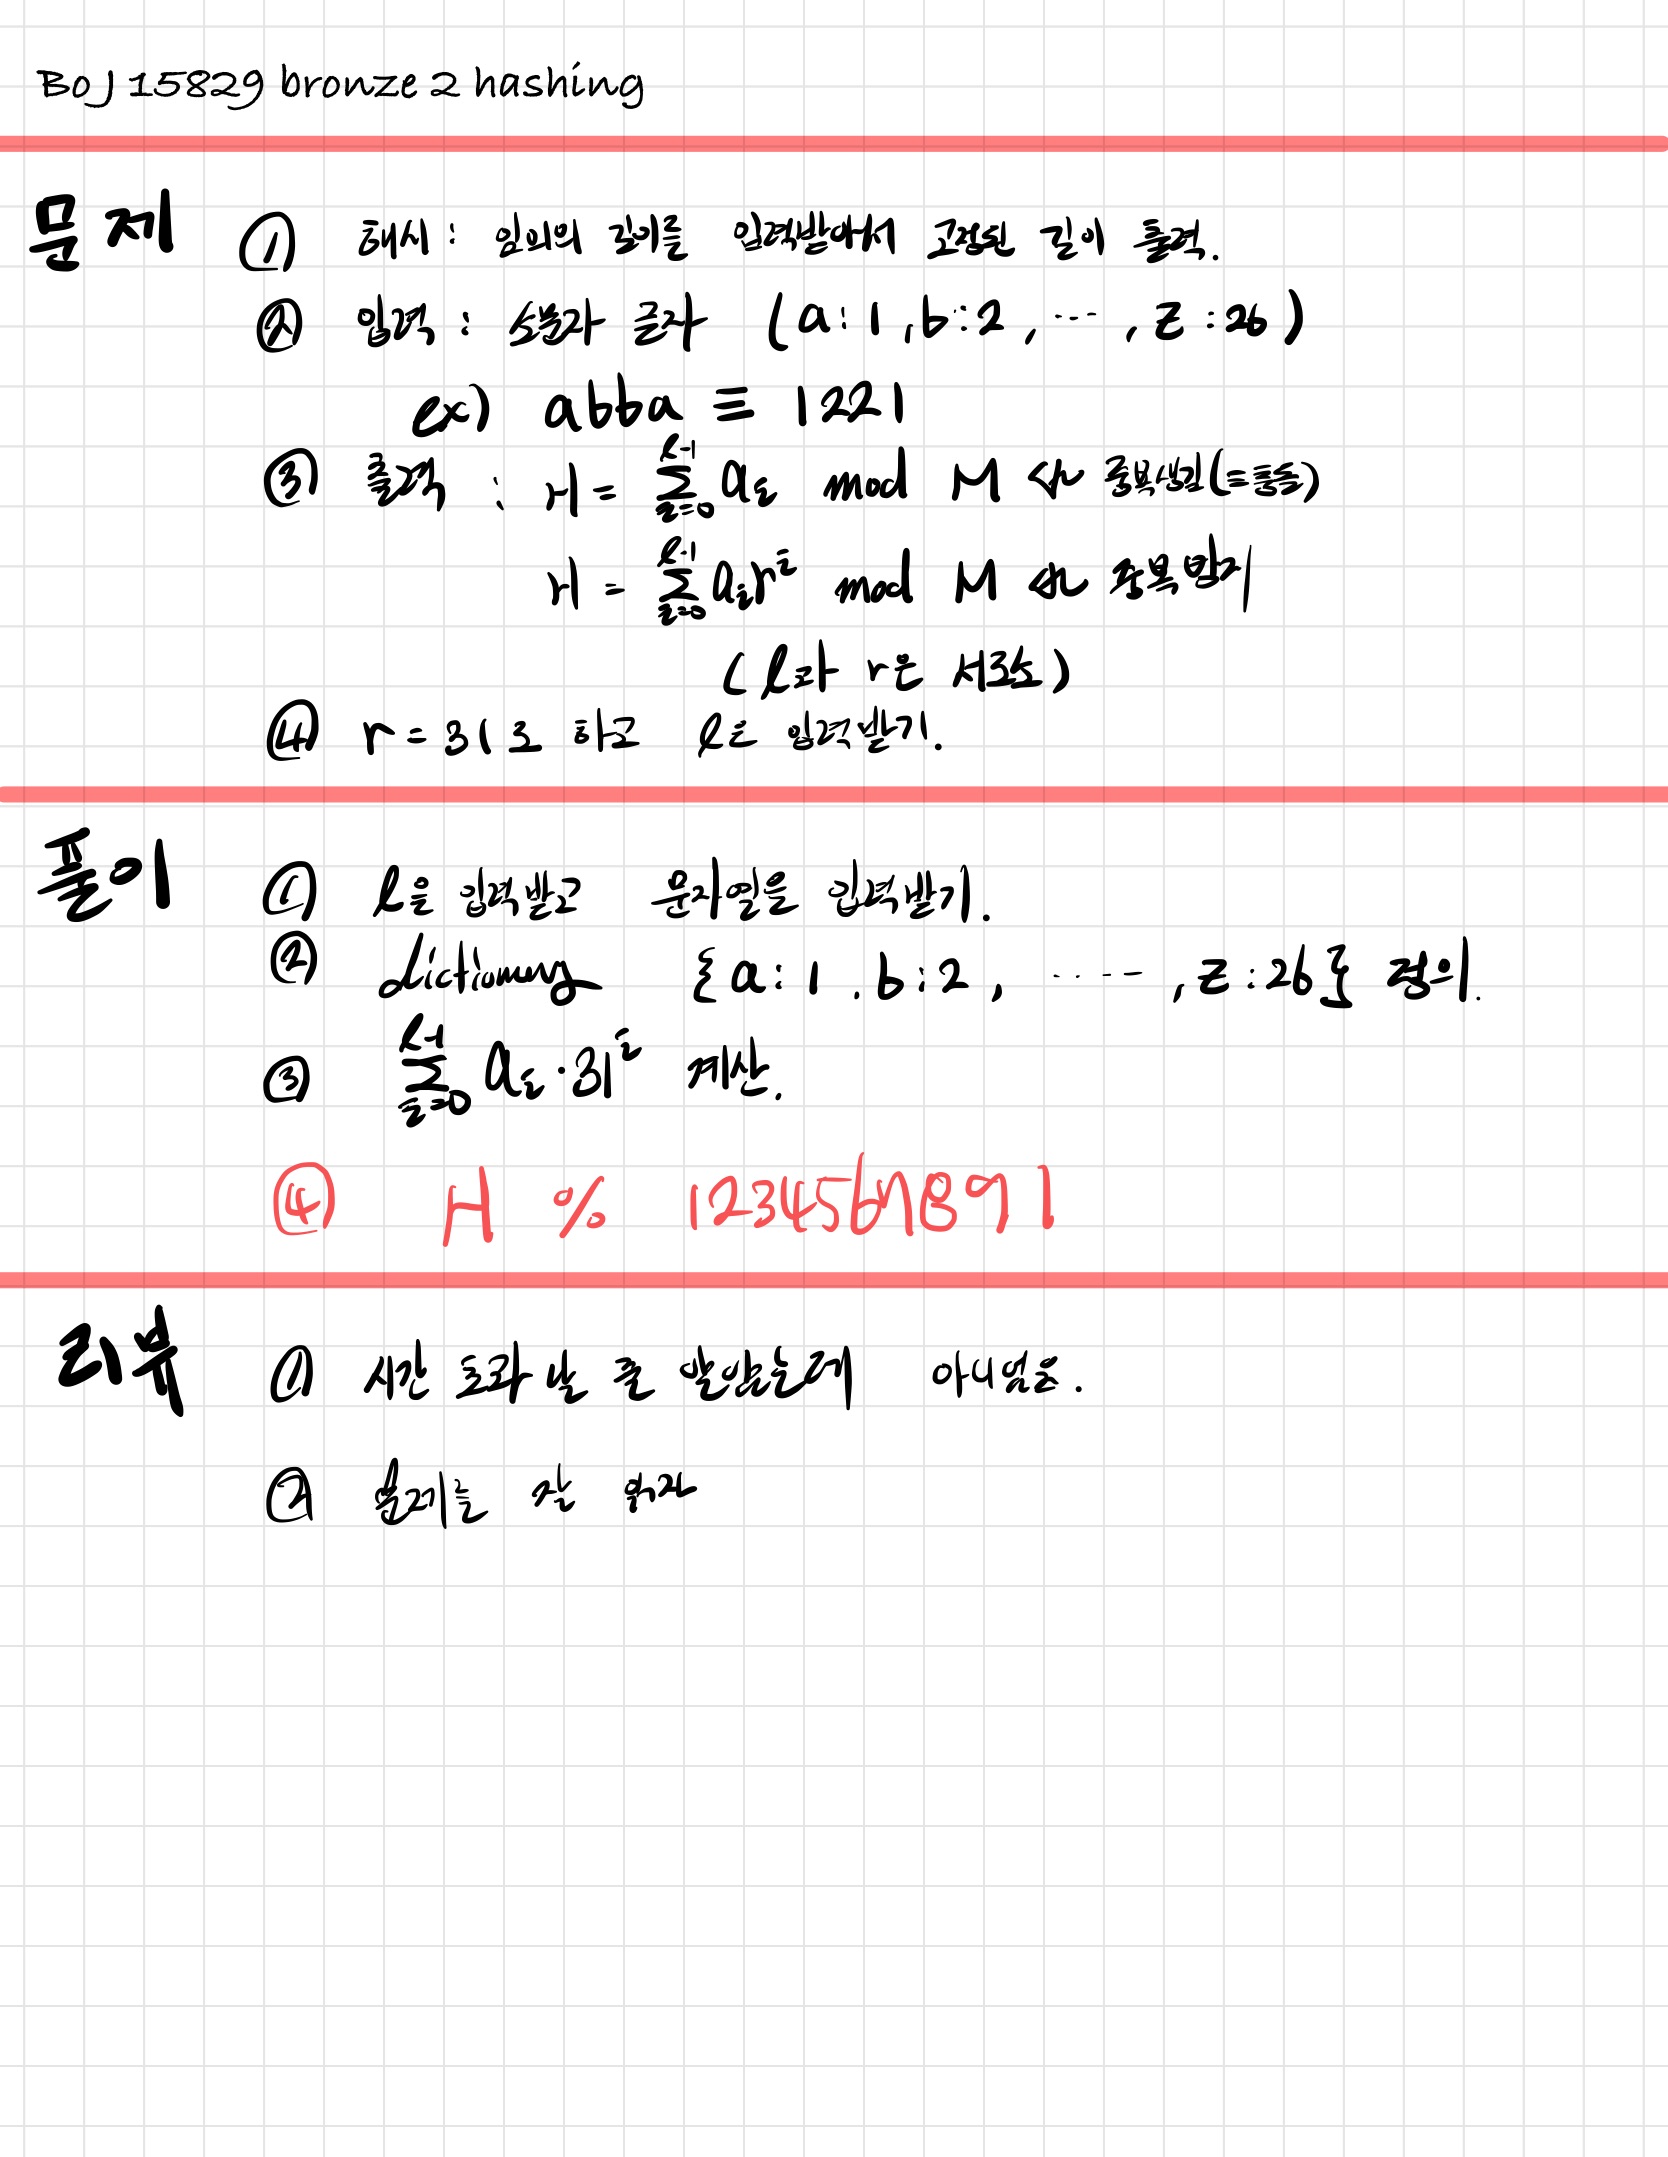 BOJ 15829 bronze 2 hashing
문제 ① 해시 : 임의의 길이를 입력받아서 고정된 길이 출력.
② 입력 : 소문자 글자 (a:1, b:2, ..., z:26)
ex) abba ≡ 1221
③ 출력 : H = \sum_{i=0}^{l-1} a_i mod M ← 중복생김(≡충돌)
H = \sum_{i=0}^{l-1} a_i r^i mod M ← 중복방지
(l과 r은 서로소)
④ r = 31로 하고 l은 입력받기.
풀이 ① l을 입력받고 문자열을 입력받기.
② dictionary {a:1, b:2, ....., z:26}로 정의.
③ \sum_{i=0}^{l-1} a_i · 31^i 계산.
④ H % 1234567891
리뷰 ① 시간 초과 날 줄 알았는데 아니었음.
② 문제를 잘 읽자